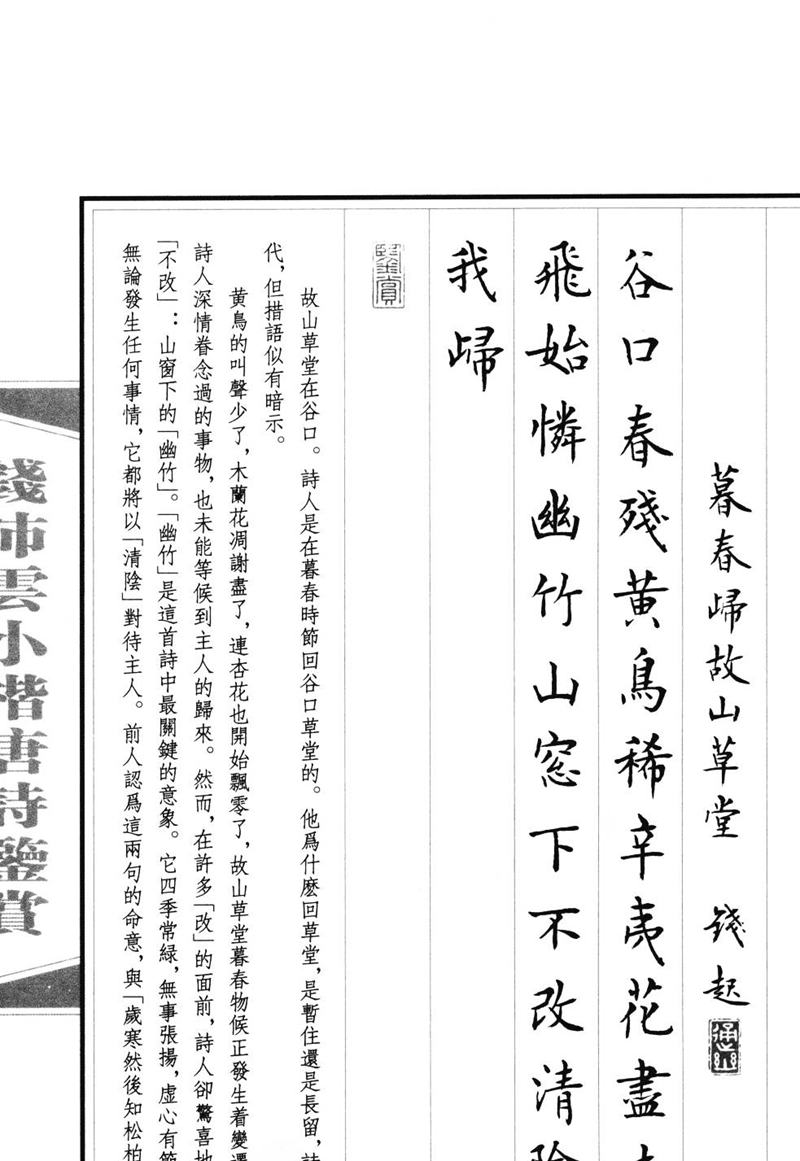 暮春歸故山草堂 錢起
谷口春殘黃鳥稀辛夷花盡
飛始憐幽竹山窓下不改清陰
我歸
鑒賞
故山草堂在谷口。詩人是在暮春時節回谷口草堂的。他爲什麽回草堂，是暫住還是長留，詩
代，但措語似有暗示。
黄鳥的叫聲少了，木蘭花凋謝盡了，連杏花也開始飄零了，故山草堂暮春物候正發生着變遷
詩人深情眷念過的事物，也未能等候到主人的歸來。然而，在許多「改」的面前，詩人卻驚喜地
「不改」：山窗下的「幽竹」。「幽竹」是這首詩中最關鍵的意象。它四季常緑，無事張揚，虚心有節
無論發生任何事情，它都將以「清陰」對待主人。前人認爲這兩句的命意，與「歲寒然後知松柏
錢沛雲小楷唐詩鑒賞